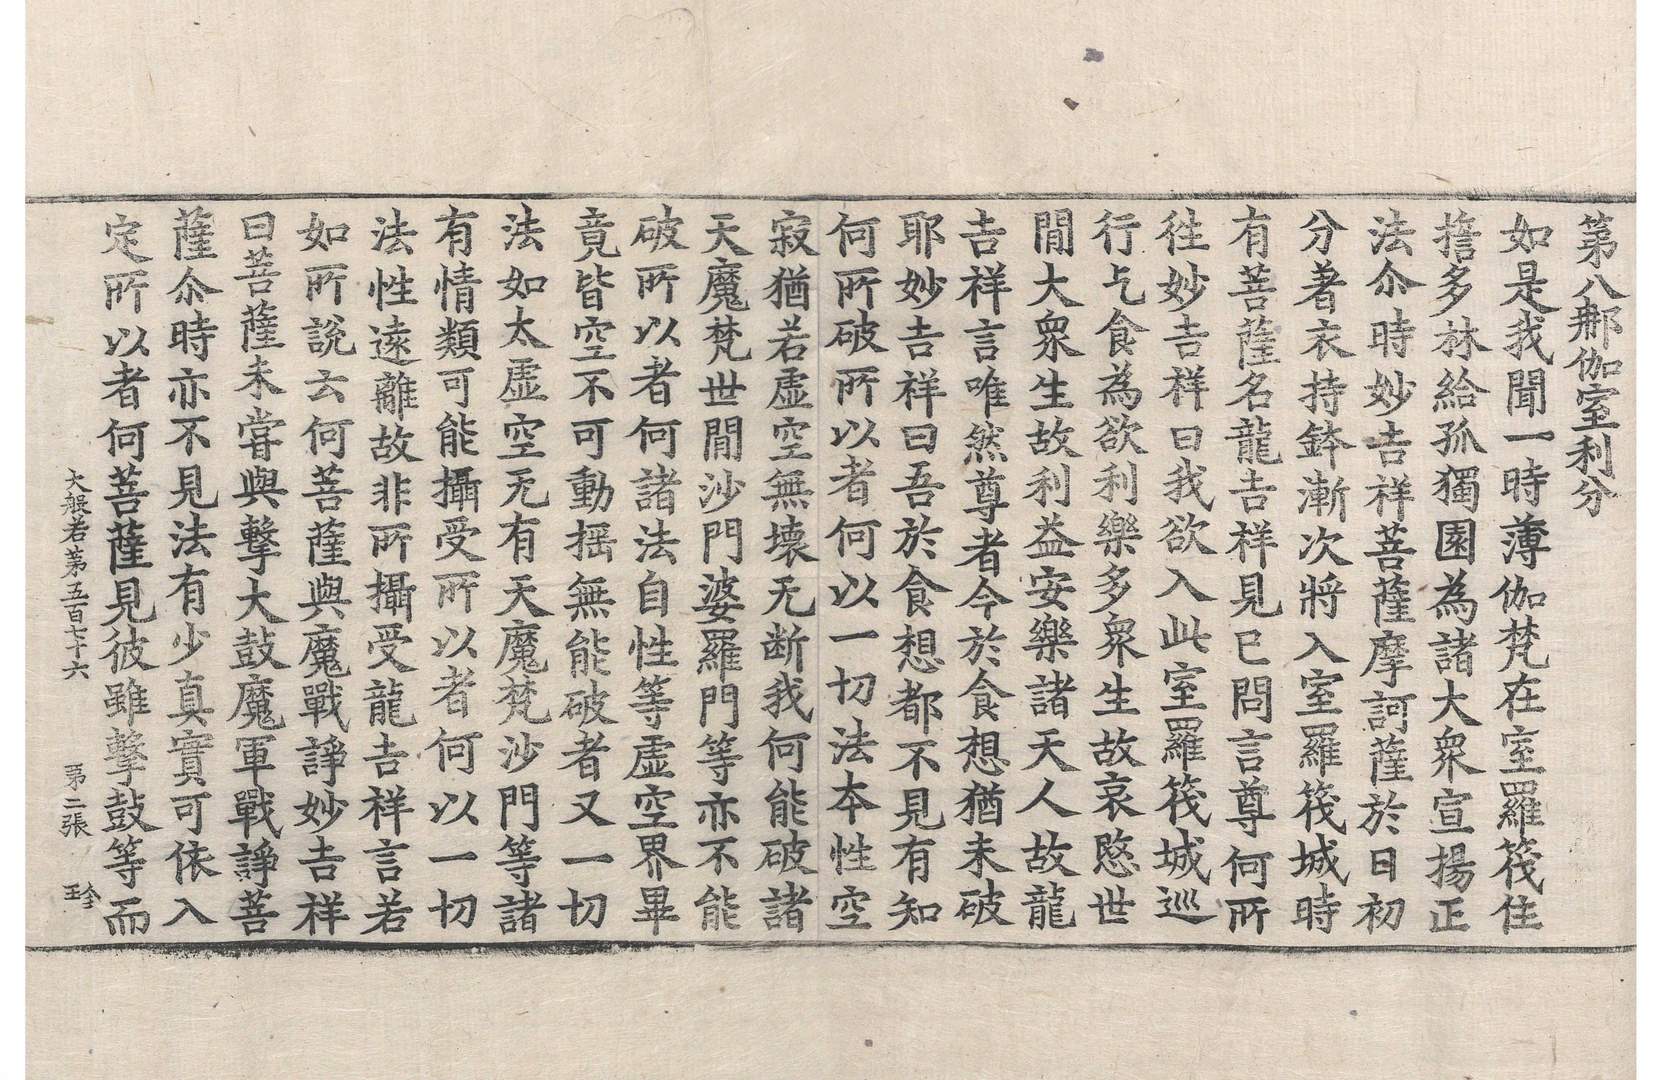 第八郍伽室利分
如是我聞一時薄伽梵在室羅筏住
擔多林給孤獨園為諸大衆宣揚正
法尒時妙吉祥菩薩摩訶薩於日初
分著衣持鉢漸次將入室羅筏城時
有菩薩名龍吉祥見已問言尊何所
往妙吉祥曰我欲入此室羅筏城巡
行乞食為欲利樂多衆生故哀愍世
間大衆生故利益安樂諸天人故龍
吉祥言唯然尊者今於食想猶未破
耶妙吉祥曰吾於食想都不見有知
何所破所以者何以一切法本性空
寂猶若虛空無壞无断我何能破諸
天魔梵世間沙門婆羅門等亦不能
破所以者何諸法自性等虛空界畢
竟皆空不可動摇無能破者又一切
法如太虛空无有天魔梵沙門等諸
有情類可能攝受所以者何以一切
法性遠離故非所攝受龍吉祥言若
如所說云何菩薩與魔戰諍妙吉祥
曰菩薩未甞與擊大鼓魔軍戰諍菩
薩尒時亦不見法有少真實可依入
定所以者何菩薩見彼雖擊鼓等而
大般若第五百七十六　第二張　珎